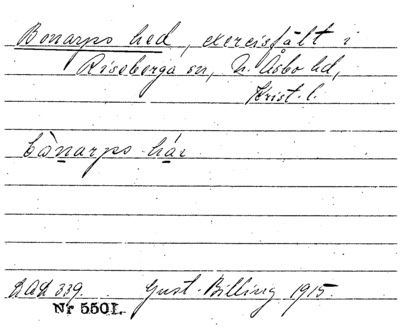 Bonarps hed, exercisfält i
Riseberga sn, N. Åsbo hd,
Krist. l.
bònarps hár
LAL 339. Gust. Billing 1915.
Nr 5501.